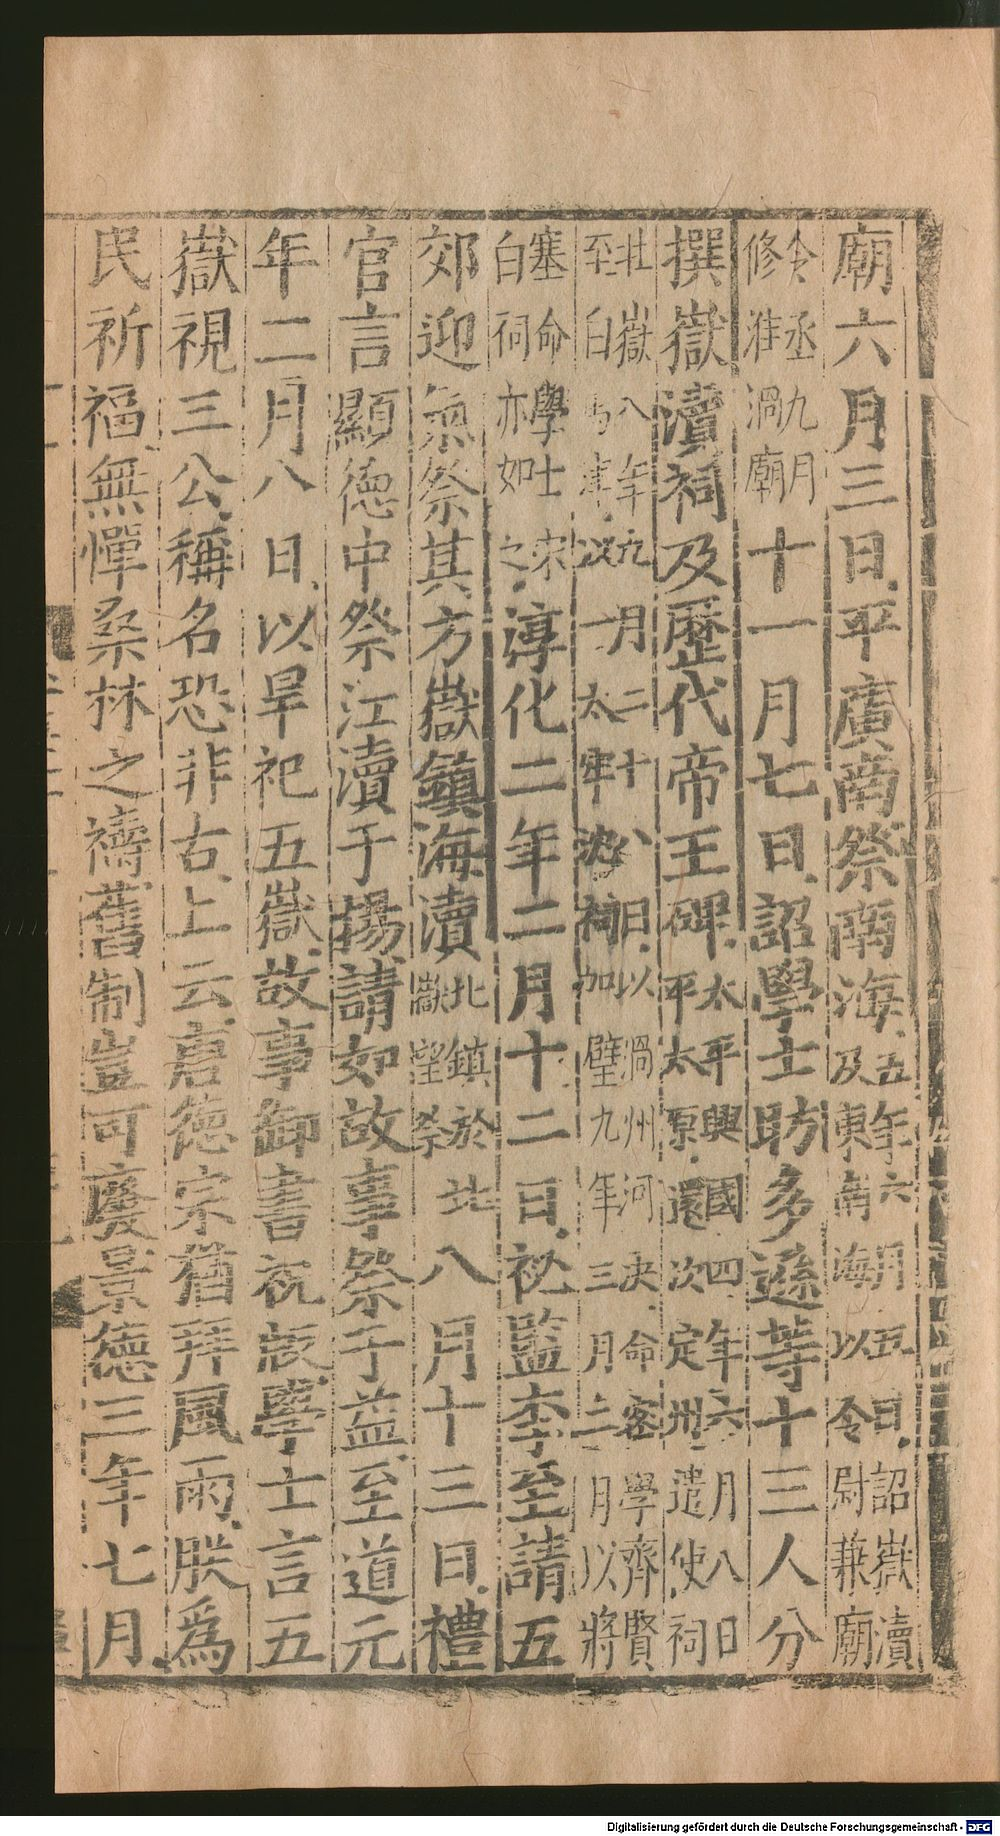 廟六月三日平廣南祭南海及東南海以令尉兼廟五年六月五日詔嶽瀆
令丞九月修淮渦廟十一月七日詔學士昉多遜等十三人分
撰嶽瀆祠及歷代帝王碑太平興國四年六月八日平太原還次定州遣使祠
北嶽八年九月二十八日以渦州河決命客學齊賢至白馬津以一太牢沈祠加璧九年三月二月以將
塞命學士宋白祠亦如之淳化二年二月十二日祕監李至請五
郊迎氣祭其方嶽鎮海瀆北鎮於北嶽望祭八月十三日禮
官言顯德中祭江瀆于揚請如故事祭于益至道元
年二月八日以旱祀五嶽故事御書祝版學士言五
嶽視三公稱名恐非古上云唐德宗猶拜風雨朕為
民祈福無憚桑林之禱舊制豈可廢景德三年七月
Digitalisierung gefördert durch die Deutsche Forschungsgemeinschaft - DFG